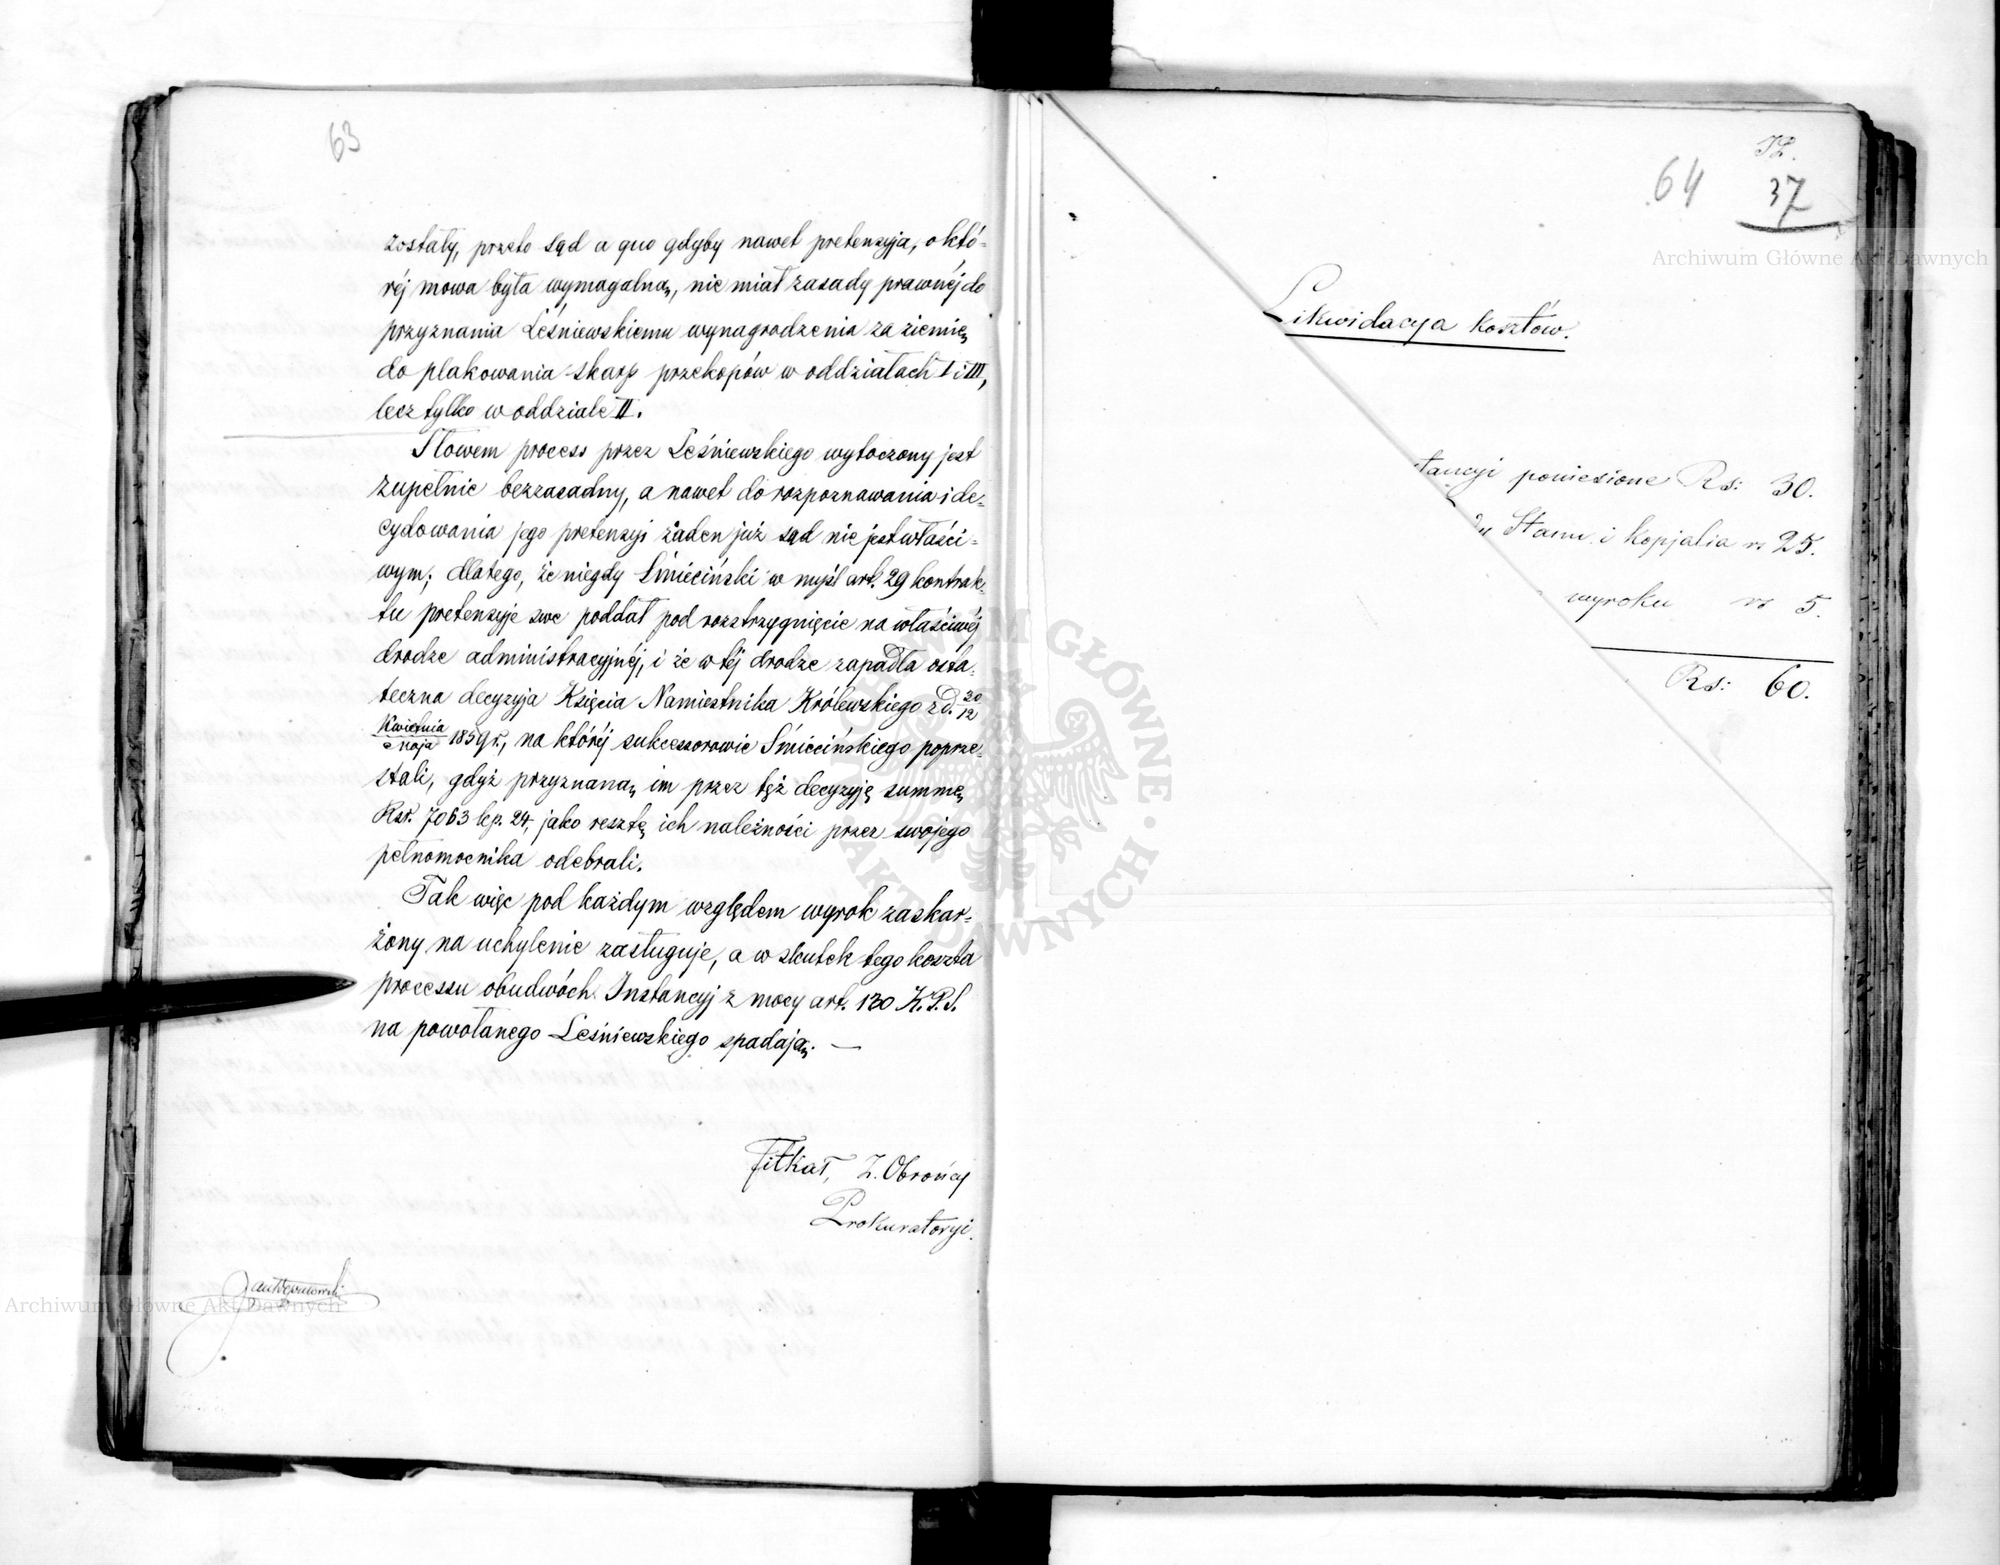 63
zostały, przeto Sąd a quo gdyby nawet pretensyja, o któ-
réj mowa była wymagalną, nie miał zasady prawnéj do
przyznania Leśniewskiemu wynagrodzenia za ziemię
do plakowania skarp przekopów w oddziałach I i III,
lecz tylko w oddziale II.
Słowem process przez Leśniewskiego wytoczony jest
zupełnie bezzasadny, a nawet do rozpoznawania i de-
cydowania jego pretensyi żaden już sąd nie jest właści-
wym; dlatego, że niegdy Śmieciński w myśl art. 29 kontrak-
tu pretensyje swe poddał pod rozstrzygnięcie na właściwéj
drodze administracyjnéj, i że w téj drodze zapadła osta-
teczna decyzyja Księcia Namiestnika Królewskiego z d. 30/12
Kwietnia/Maja 1859 r., na któréj sukcessorowie Śmiecińskiego poprze-
stali, gdyż przyznaną im przez tęż decyzyję summę
Rsr. 7063 kop. 24, jako resztę ich należności przez swojego
pełnomocnika odebrali.
Tak więc pod każdym względem wyrok zaskar-
żony na uchylenie zasługuje, a w skutek tego koszta
processu obudwóch Instancyj z mocy art. 130 K.P.S.
na powołanego Leśniewskiego spadają. —
Fitkał, Z. Obrońcy
Prokuratoryi.
64
37
Likwidacyja kosztów.
tancyi poniesione Rs: 30.
Stamu i kopjalia rs 25.
wyroku rs 5.
Rs: 60.
Archiwum Główne Akt Dawnych
Archiwum Główne Akt Dawnych
ARCHIWUM GŁÓWNE · AKT DAWNYCH ·